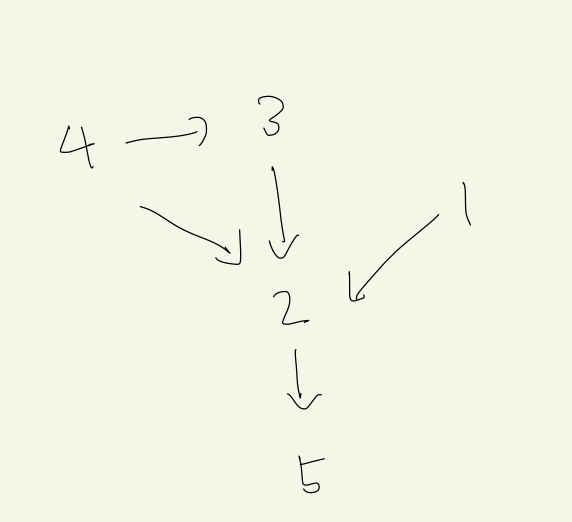 4 → 3
1
2
5